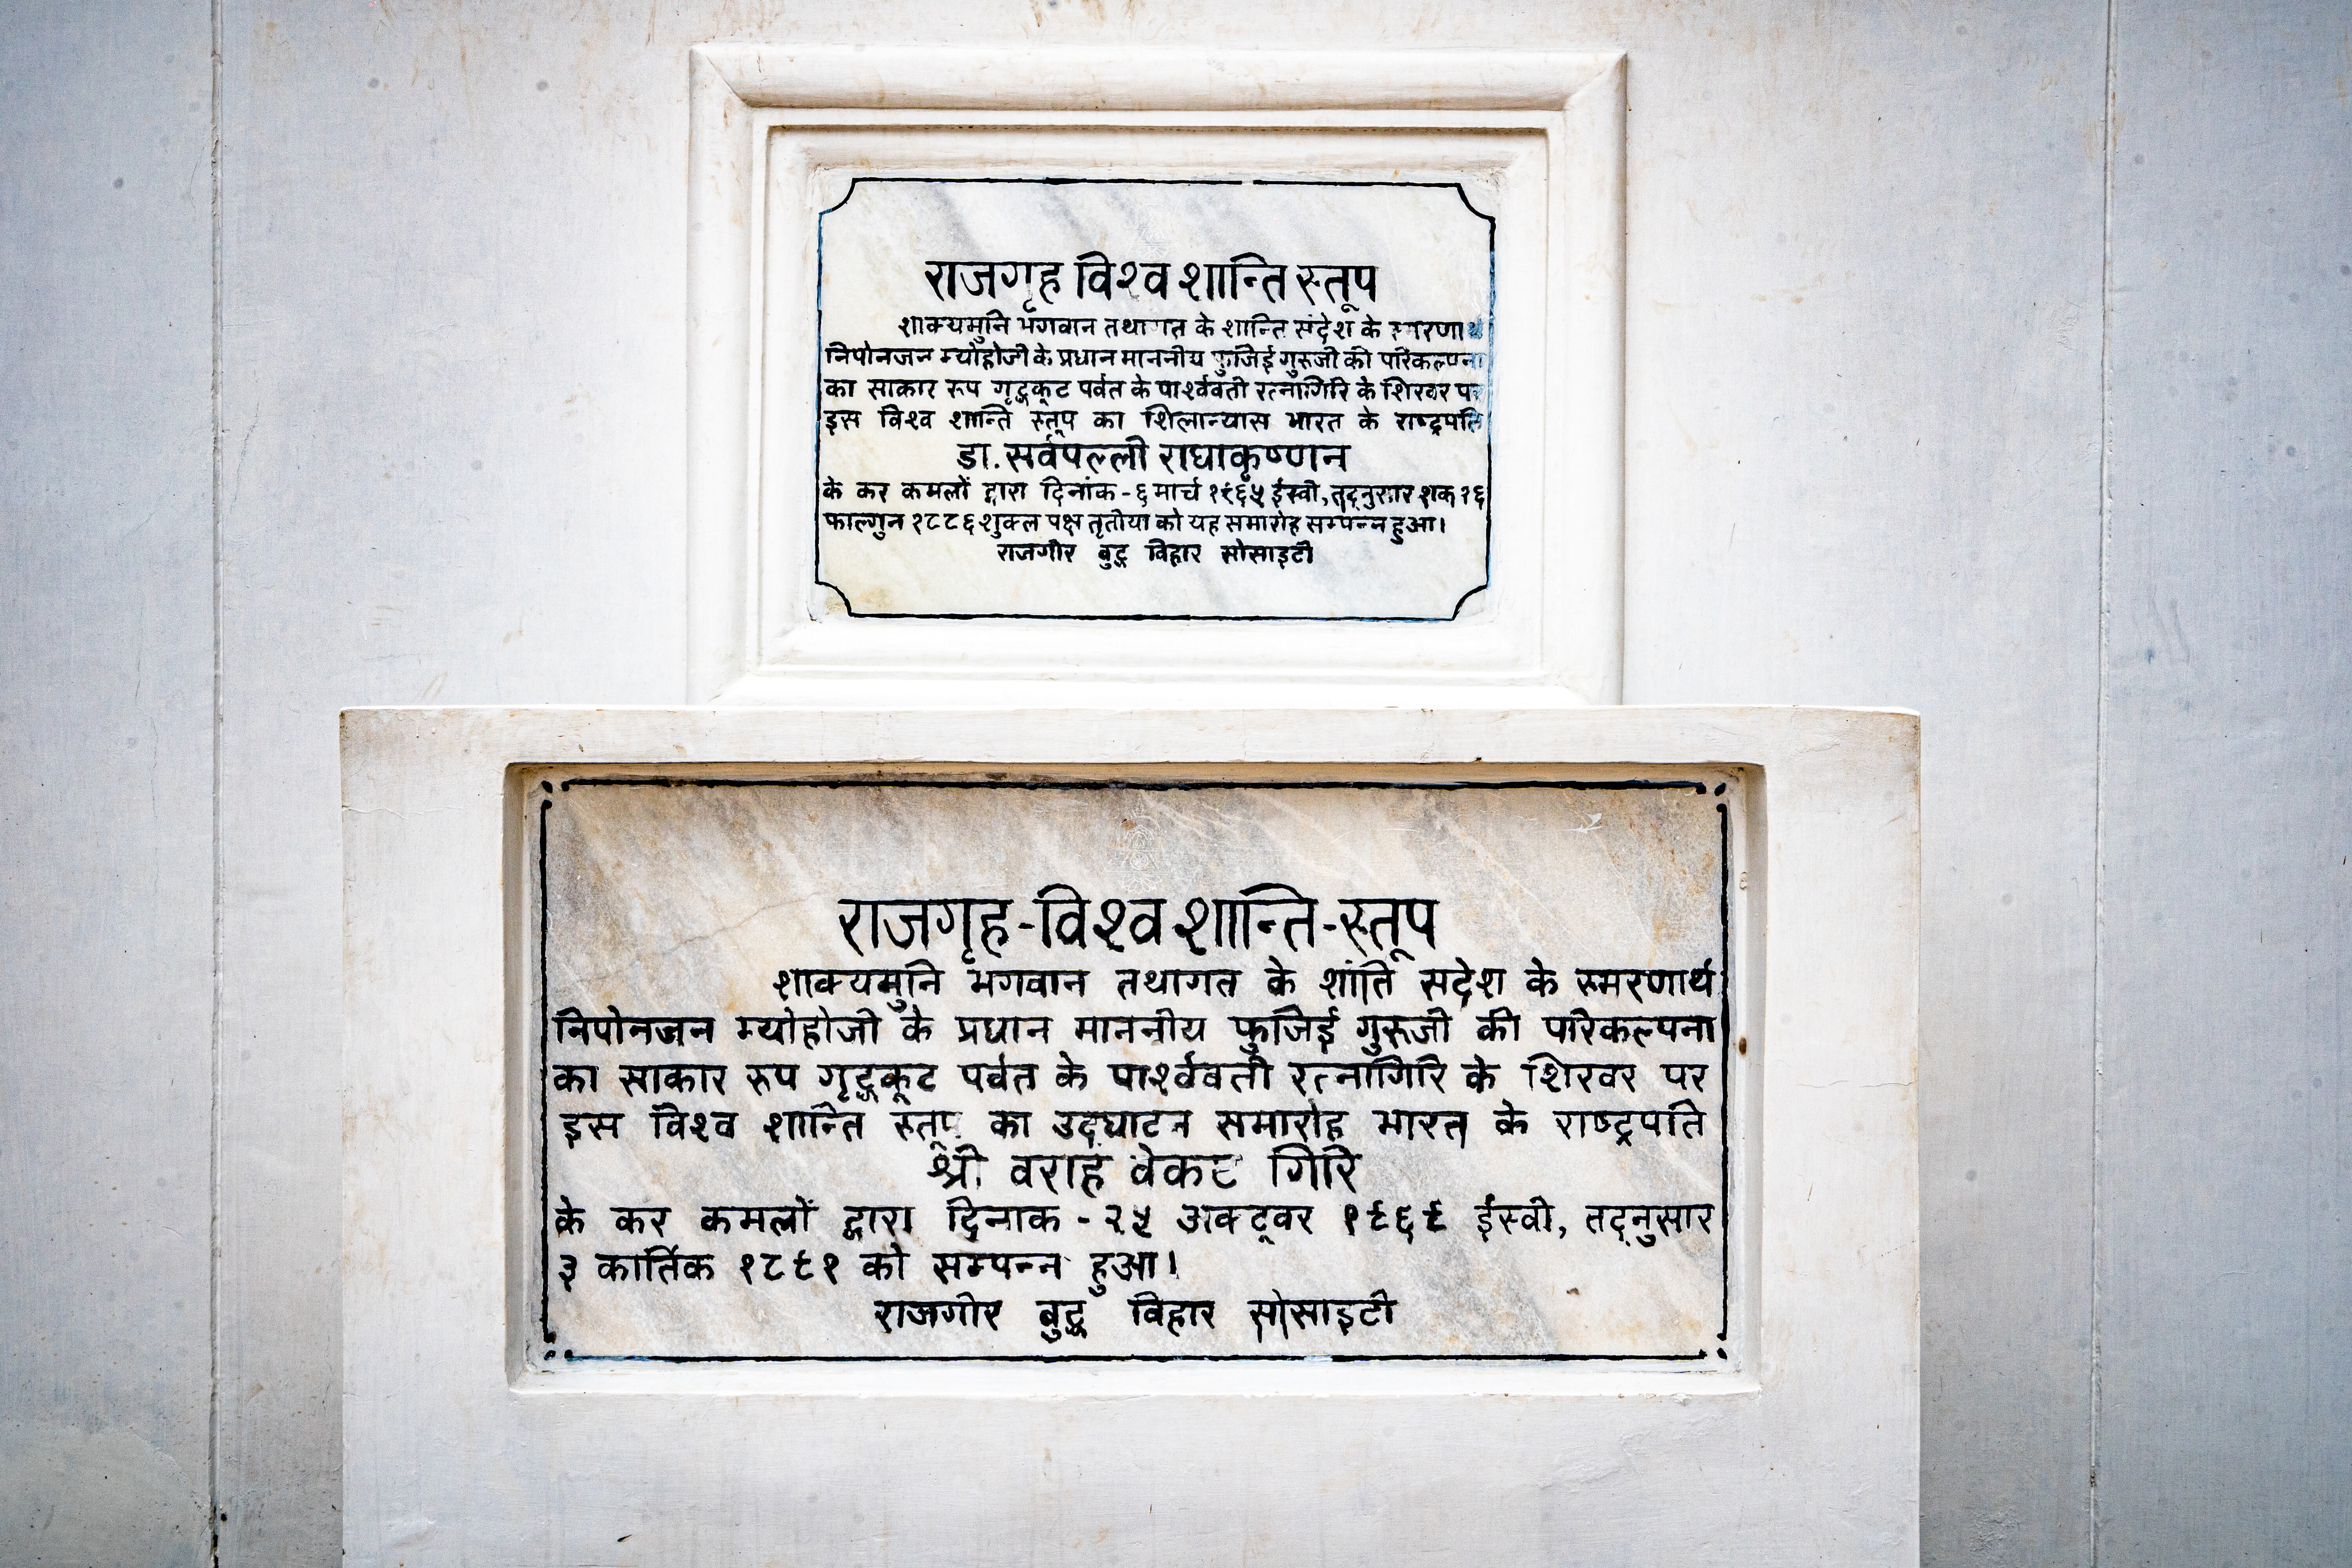 राजगृह विश्व शान्ति स्तूप
शाक्यमुनि भगवान तथागत के शान्ति संदेश के स्मरणार्थ
निपोनजन म्योहोजी के प्रधान माननीय फुजिई गुरूजी की परिकल्पना
का साकार रूप गृद्धकूट पर्वत के पार्श्ववर्ती रत्नागिरि के शिखर पर
इस विश्व शान्ति स्तूप का शिलान्यास भारत के राष्ट्रपति
डा. सर्वपल्ली राधाकृष्णन
के कर कमलों द्वारा दिनांक - ६ मार्च १९६५ ईस्वी, तद्नुसार शक १६
फाल्गुन १८८६ शुक्ल पक्ष तृतीया को यह समारोह सम्पन्न हुआ।
राजगीर बुद्ध विहार सोसाइटी
राजगृह-विश्व शान्ति-स्तूप
शाक्यमुनि भगवान तथागत के शांति सदेश के स्मरणार्थ
निपोनजन म्योहोजी के प्रधान माननीय फुजिई गुरूजी की परिकल्पना
का साकार रुप गृद्धकूट पर्वत के पार्श्ववर्ती रत्नागिरि के शिखर पर
इस विश्व शान्ति स्तूप का उदघाटन समारोह भारत के राष्ट्रपति
श्री वराह वेकट गिरि
के कर कमलों द्वारा दिनाक - २५ अक्टूवर १९६९ ईस्वी, तद्नुसार
३ कार्तिक १८९१ को सम्पन्न हुआ।
राजगीर बुद्ध विहार सोसाइटी